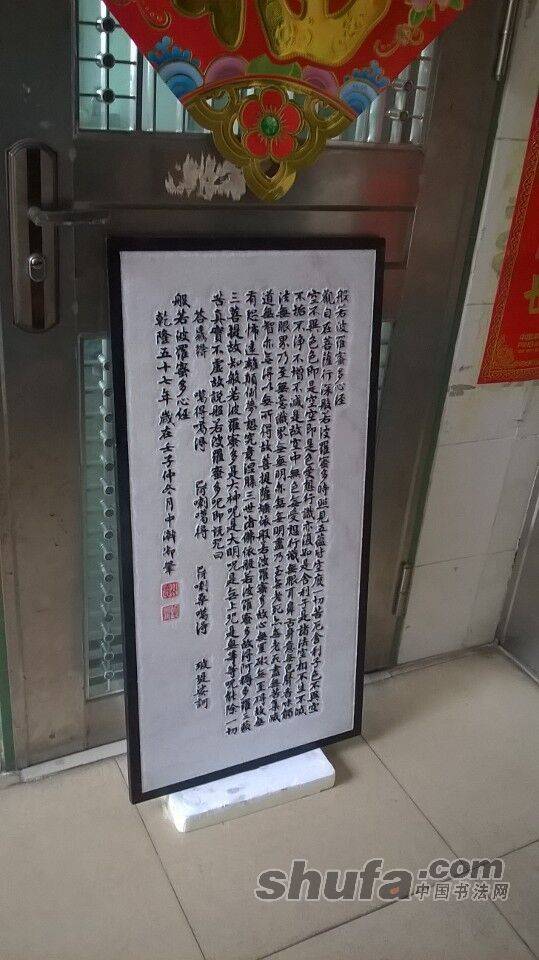 般若波羅蜜多心経
觀自在菩薩行深般若波羅蜜多時照見五蘊皆空度一切苦厄舍利子色不異空
空不異色色即是空空即是色受想行識亦復如是舍利子是諸法空相不生不滅
不垢不淨不增不減是故空中無色無受想行識無眼耳鼻舌身意無色聲香味觸
法無眼界乃至無意識界無無明亦無無明盡乃至無老死亦無老死盡無苦集滅
道無智亦無得以無所得故菩提薩埵依般若波羅蜜多故心無罣礙無罣礙故無
有恐怖遠離顛倒夢想究竟涅槃三世諸佛依般若波羅蜜多故得阿耨多羅三藐
三菩提故知般若波羅蜜多是大神咒是大明咒是無上咒是無等等咒能除一切
苦真實不虛故說般若波羅蜜多咒即說咒曰
揭得揭得 波囉揭得 波囉桑揭得 菩提娑訶
般若波羅蜜多心経
乾隆五十七年歲在壬子仲冬月中澣御筆
shufa.com
中国书法网